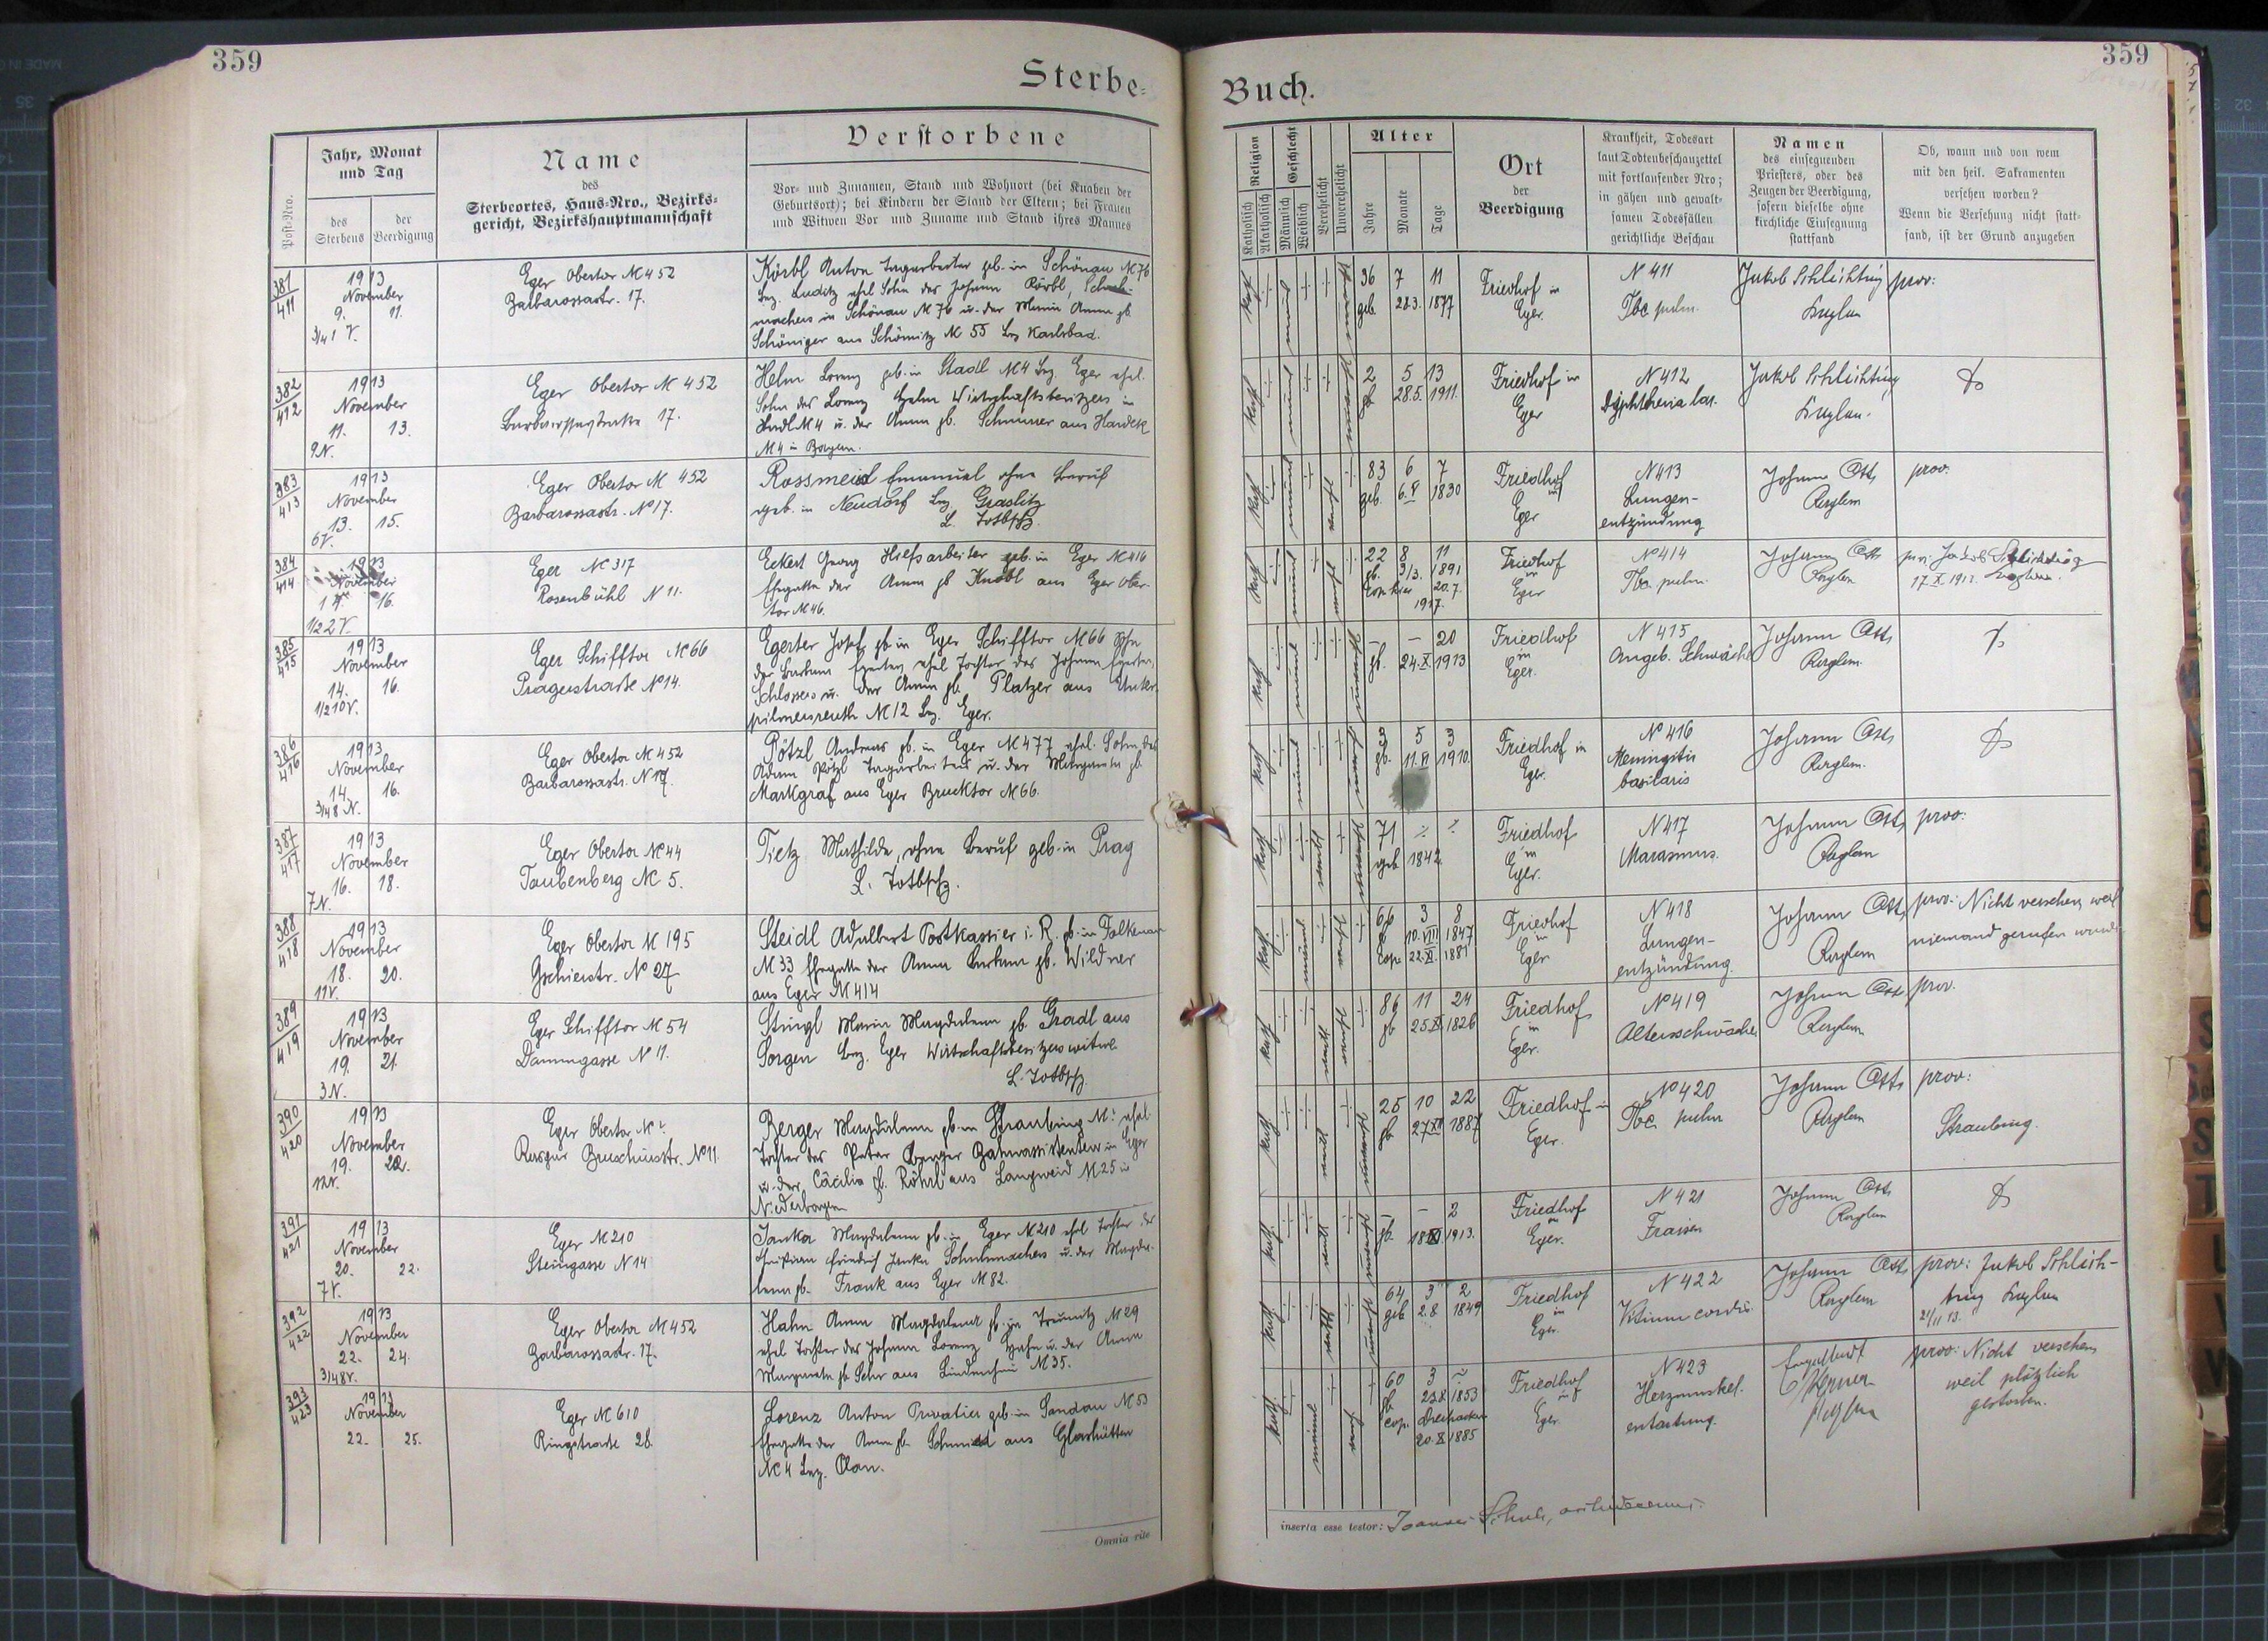 359
359
Sterbe-
Buch.
Post-Nro.
Jahr, Monat
und Tag
des
Sterbens
der
Beerdigung
Name
des
Sterbeortes, Haus-Nro., Bezirks-
gericht, Bezirkshauptmannschaft
Verstorbene
Vor- und Zunamen, Stand und Wohnort (bei Knaben der
Geburtsort); bei Kindern der Stand der Eltern; bei Frauen
und Witwen Vor und Zuname und Stand ihres Mannes
Religion
Katholisch
Akatholisch
Geschlecht
Männlich
Weiblich
Verehelicht
Unverehelicht
Alter
Jahre
Monate
Tage
Ort
der
Beerdigung
Krankheit, Todesart
laut Todtenbeschauzettel
mit fortlaufender Nro;
in gähen und gewalt-
samen Todesfällen
gerichtliche Beschau
Namen
des einsegnenden
Priesters, oder des
Zeugen der Beerdigung,
sofern dieselbe ohne
kirchliche Einsegnung
stattfand
Ob, wann und von wem
mit den heil. Sakramenten
versehen worden?
Wenn die Versehung nicht statt-
fand, ist der Grund anzugeben
381
411
1913
November
9. 11.
3/4 1 V.
Eger Obertor № 452
Barbarossastr. 17.
Körbl Anton Tagarbeiter geb. in Schönau № 76
Bez. Luditz ehel Sohn des Johann Körbl, Schuh-
machers in Schönau № 76 u. der Maria Anna gb.
Schöniger aus Schömitz № 55 Bez Karlsbad.
36 7 11
geb. 28.3. 1877
Friedhof in
Eger.
N 411
Tbc pulm.
Jakob Schlichting
Kaplan
prov:
382
412
1913
November
11. 13.
2N.
Eger Obertor № 452
Barbarossastraße 17.
Helm Lorenz geb. in Stadl №4 Bez. Eger ehel.
Sohn des Lorenz Helm Wirtschaftsbesitzers in
Stadl №4 u. der Anna gb. Schmirer aus Hardeck
№4 in Bayern.
2 5 13
28.5. 1911.
Friedhof in
Eger
N412
Diphtheria lar.
Jakob Schlichting
Kaplan.
383
413
1913
November
13. 15.
6V.
Eger Obertor № 452
Barbarossastr. №17.
Rossmeisl Emanuel ohne Beruf
geb. in Neudorf Bez Graslitz
L. Totbschz.
83 6 7
geb. 6.V 1830
Friedhof
in
Eger
N413
Lungen-
entzündung
Johann Ott
Kaplan
prov.
384
414
1913
November
14. 16.
1/2 2 V.
Eger № 317
Rosenbühl N 11.
Eckert Georg Hilfsarbeiter geb. in Eger № 416
Ehegatte der Anna gb Knöbl aus Eger Ober-
tor № 46.
22 8 11
gb. 3/3. 1891
20.7.
Friedhof
in
Eger
№414
Tbc. pulm.
Johann Ott
Kaplan
prov: Jakob Schlichting
Kaplan.
385
415
1913
November
14. 16.
1/2 10V.
Eger Schifftor № 66
Pragerstraße №14.
Egerter Josef gb in Eger Schifftor №66 Sohn
der Barbara Egerter ehel Tochter des Johann Egerter,
Schlossers u. der Anna gb. Platzer aus Unter-
pilmersreuth №12 Bez. Eger.
– – 20
gb. 24.X.1913
Friedhof
in
Eger.
N 415
Angeb. Schwäche
Johann Ott
Kaplan.
386
416
1913
November
14. 16.
3/4 8 N.
Eger Obertor № 452
Barbarossastr. N 17.
Pötzl Andreas gb. in Eger № 477 ehel. Sohn des
Adam Pötzl Tagarbeiters u. der Margareta gb.
Markgraf aus Eger Brucktor №66.
3 5 3
gb. 11.VI 1910.
Friedhof in
Eger.
№ 416
Meningitis
basilaris
Johann Ott
Kaplan.
387
417
1913
November
16. 18.
7N.
Eger Obertor №44
Taubenberg № 5.
Tietz Mathilde, ohne Beruf geb. in Prag
L. Totbschz.
71
geb 1842.
Friedhof
in
Eger.
N417
Marasmus.
Johann Ott
Kaplan
prov:
388
418
1913
November
18. 20.
11V.
Eger Obertor № 195
Gschierstr. № 27
Steidl Adalbert Postkassier i. R. gb. in Falkenau
№ 33 Ehegatte der Anna Barbara gb. Wildner
aus Eger №414
66 3 8
10.VIII 1847
cop. 22.XI. 1881
Friedhof
in
Eger
N 418
Lungen-
entzündung.
Johann Ott
Kaplan
prov: Nicht versehen weil
niemand gerufen wurde
389
419
1913
November
19. 21.
3N.
Eger Schifftor № 54
Dammgasse № 11.
Stingl Maria Magdalena gb. Gradl aus
Sorgen Bez. Eger Wirtschaftsbesitzerswitwe
L. Totbschz.
86 11 24
gb 25.XI.1826
Friedhof
in
Eger.
№419
Altersschwäche
Johann Ott
Kaplan
prov.
390
420
1913
November
19. 22.
12N.
Eger Obertor № ∸
Kaspar Bruschiusstr. №11
Berger Magdalena gb. in Straubing № ∸ ehel.
Tochter des Peter Berger Bahnassistenten in Eger
u. der Cäcilia gb. Röhrl aus Langweid № 25 in
Niederbayern
25 10 22
gb 27XII 1887
Friedhof in
Eger.
№420
Tbc. pulm
Johann Ott
Kaplan
prov:
Straubing.
391
421
1913
November
20. 22.
7V.
Eger №210
Steingasse N 14
Janka Magdalena gb. in Eger №210 ehel Tochter des
Christian Friedrich Janka Schuhmachers u. der Magda-
lena gb. Frank aus Eger №82.
– – 2
gb. 18XI.1913.
Friedhof
in
Eger.
N 421
Fraisen
Johann Ott
Kaplan
392
422
1913
November
22. 24.
3/4 8V.
Eger Obertor № 452
Barbarossastr. 17.
Hahn Anna Magdalena gb. in Treunitz № 29
ehel Tochter des Johann Lorenz Hahn u. der Anna
Margareta gb. Sehr aus Lindenhau № 35.
64 3 2
geb 2.8. 1849
Friedhof
in
Eger.
N 422
Vitium cordis.
Johann Ott
Kaplan
prov: Jakob Schlich-
ting Kaplan
21/11 13.
393
423
1913
November
22. 25.
Eger № 610
Ringstraße 26.
Lorenz Anton Privatier geb. in Sandau № 53
Ehegatte der Anna gb. Schmied aus Glashütten
№ 4 Bez. Plan.
60 3
gb. 23.8.1853
cop. Dreihacken
20.X.1885
Friedhof
in
Eger.
N423
Herzmuskel-
entartung.
prov: Nicht versehen
weil plötzlich
gestorben.
Omnia rite
inserta esse testor: